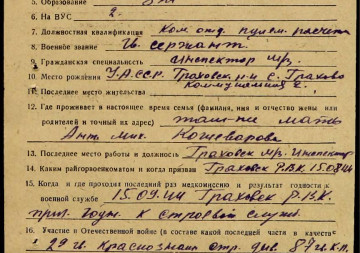 5. Образование
6. На ВУС 2.
7. Должностная квалификация Ком. отд. пулем. расчета
8. Военное звание Гв. сержант.
9. Гражданская специальность инспектор
10. Место рождения У.А.ССР. Граховск. р-н с. Грахово
11. Последнее место жительства
12. Где проживает в настоящее время семья (фамилия, имя и отчество жены или
родителей и точный их адрес) мать
Ант. Мих. Кошеварова
13. Последнее место работы и должность Граховск инспектор
14. Каким райгорвоенкоматом и когда призван Граховск. Р.В.К. 15.08.44
15. Когда и где проходил последний раз медкомиссию и результат годности к
военной службе 15.09.44 Граховск Р.В.К.
годн. к строевой служб.
16. Участие в Отечественной войне (в составе какой последней части в качеств
29 гв. Краснознам. стр. див. 87 гв.